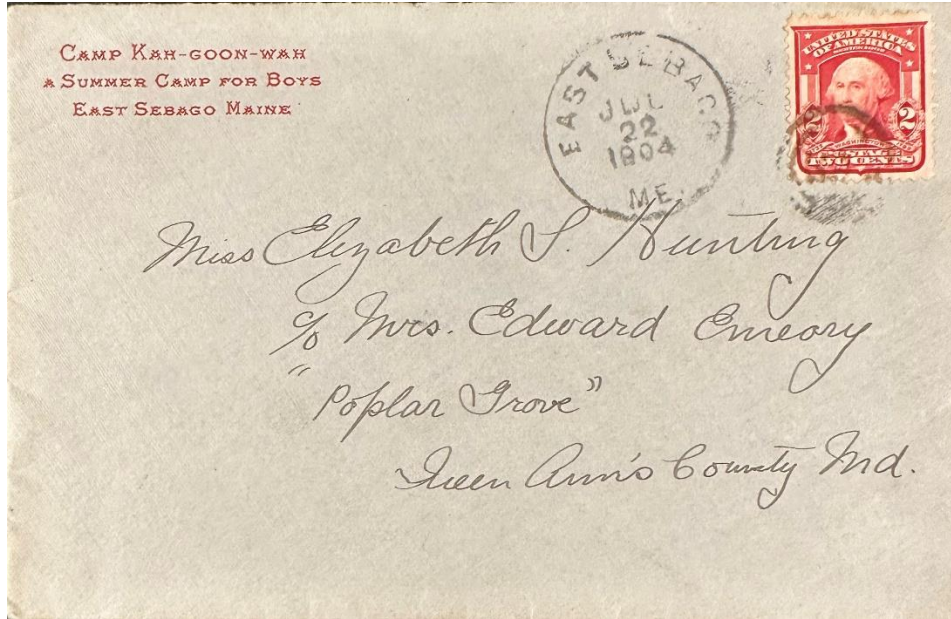 CAMP KAH-GOON-WAH
A SUMMER CAMP FOR BOYS
EAST SEBAGO MAINE
EAST SEBAGO
JUL
22
1904
ME.
UNITED STATES
OF AMERICA
2 2
WASHINGTON
POSTAGE
TWO CENTS
Miss Elizabeth S. Hunting
c/o Mrs. Edward Emeory
"Poplar Grove"
Queen Ann's County Md.